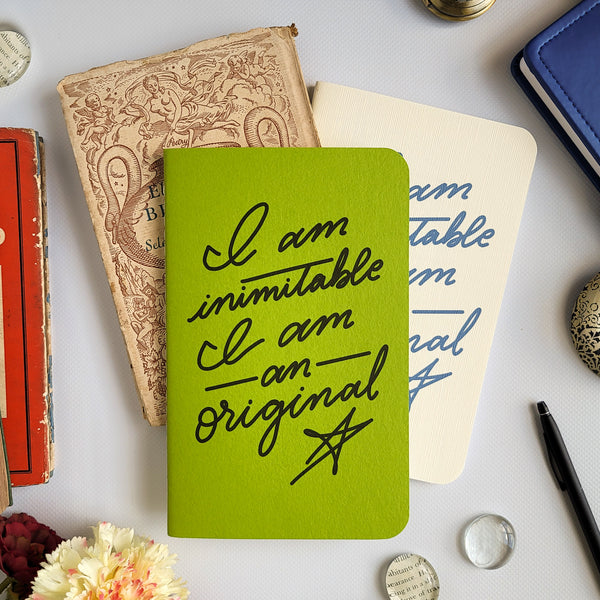 I am
inimitable
I am
an
original
am
itable
am
nal
Poetry